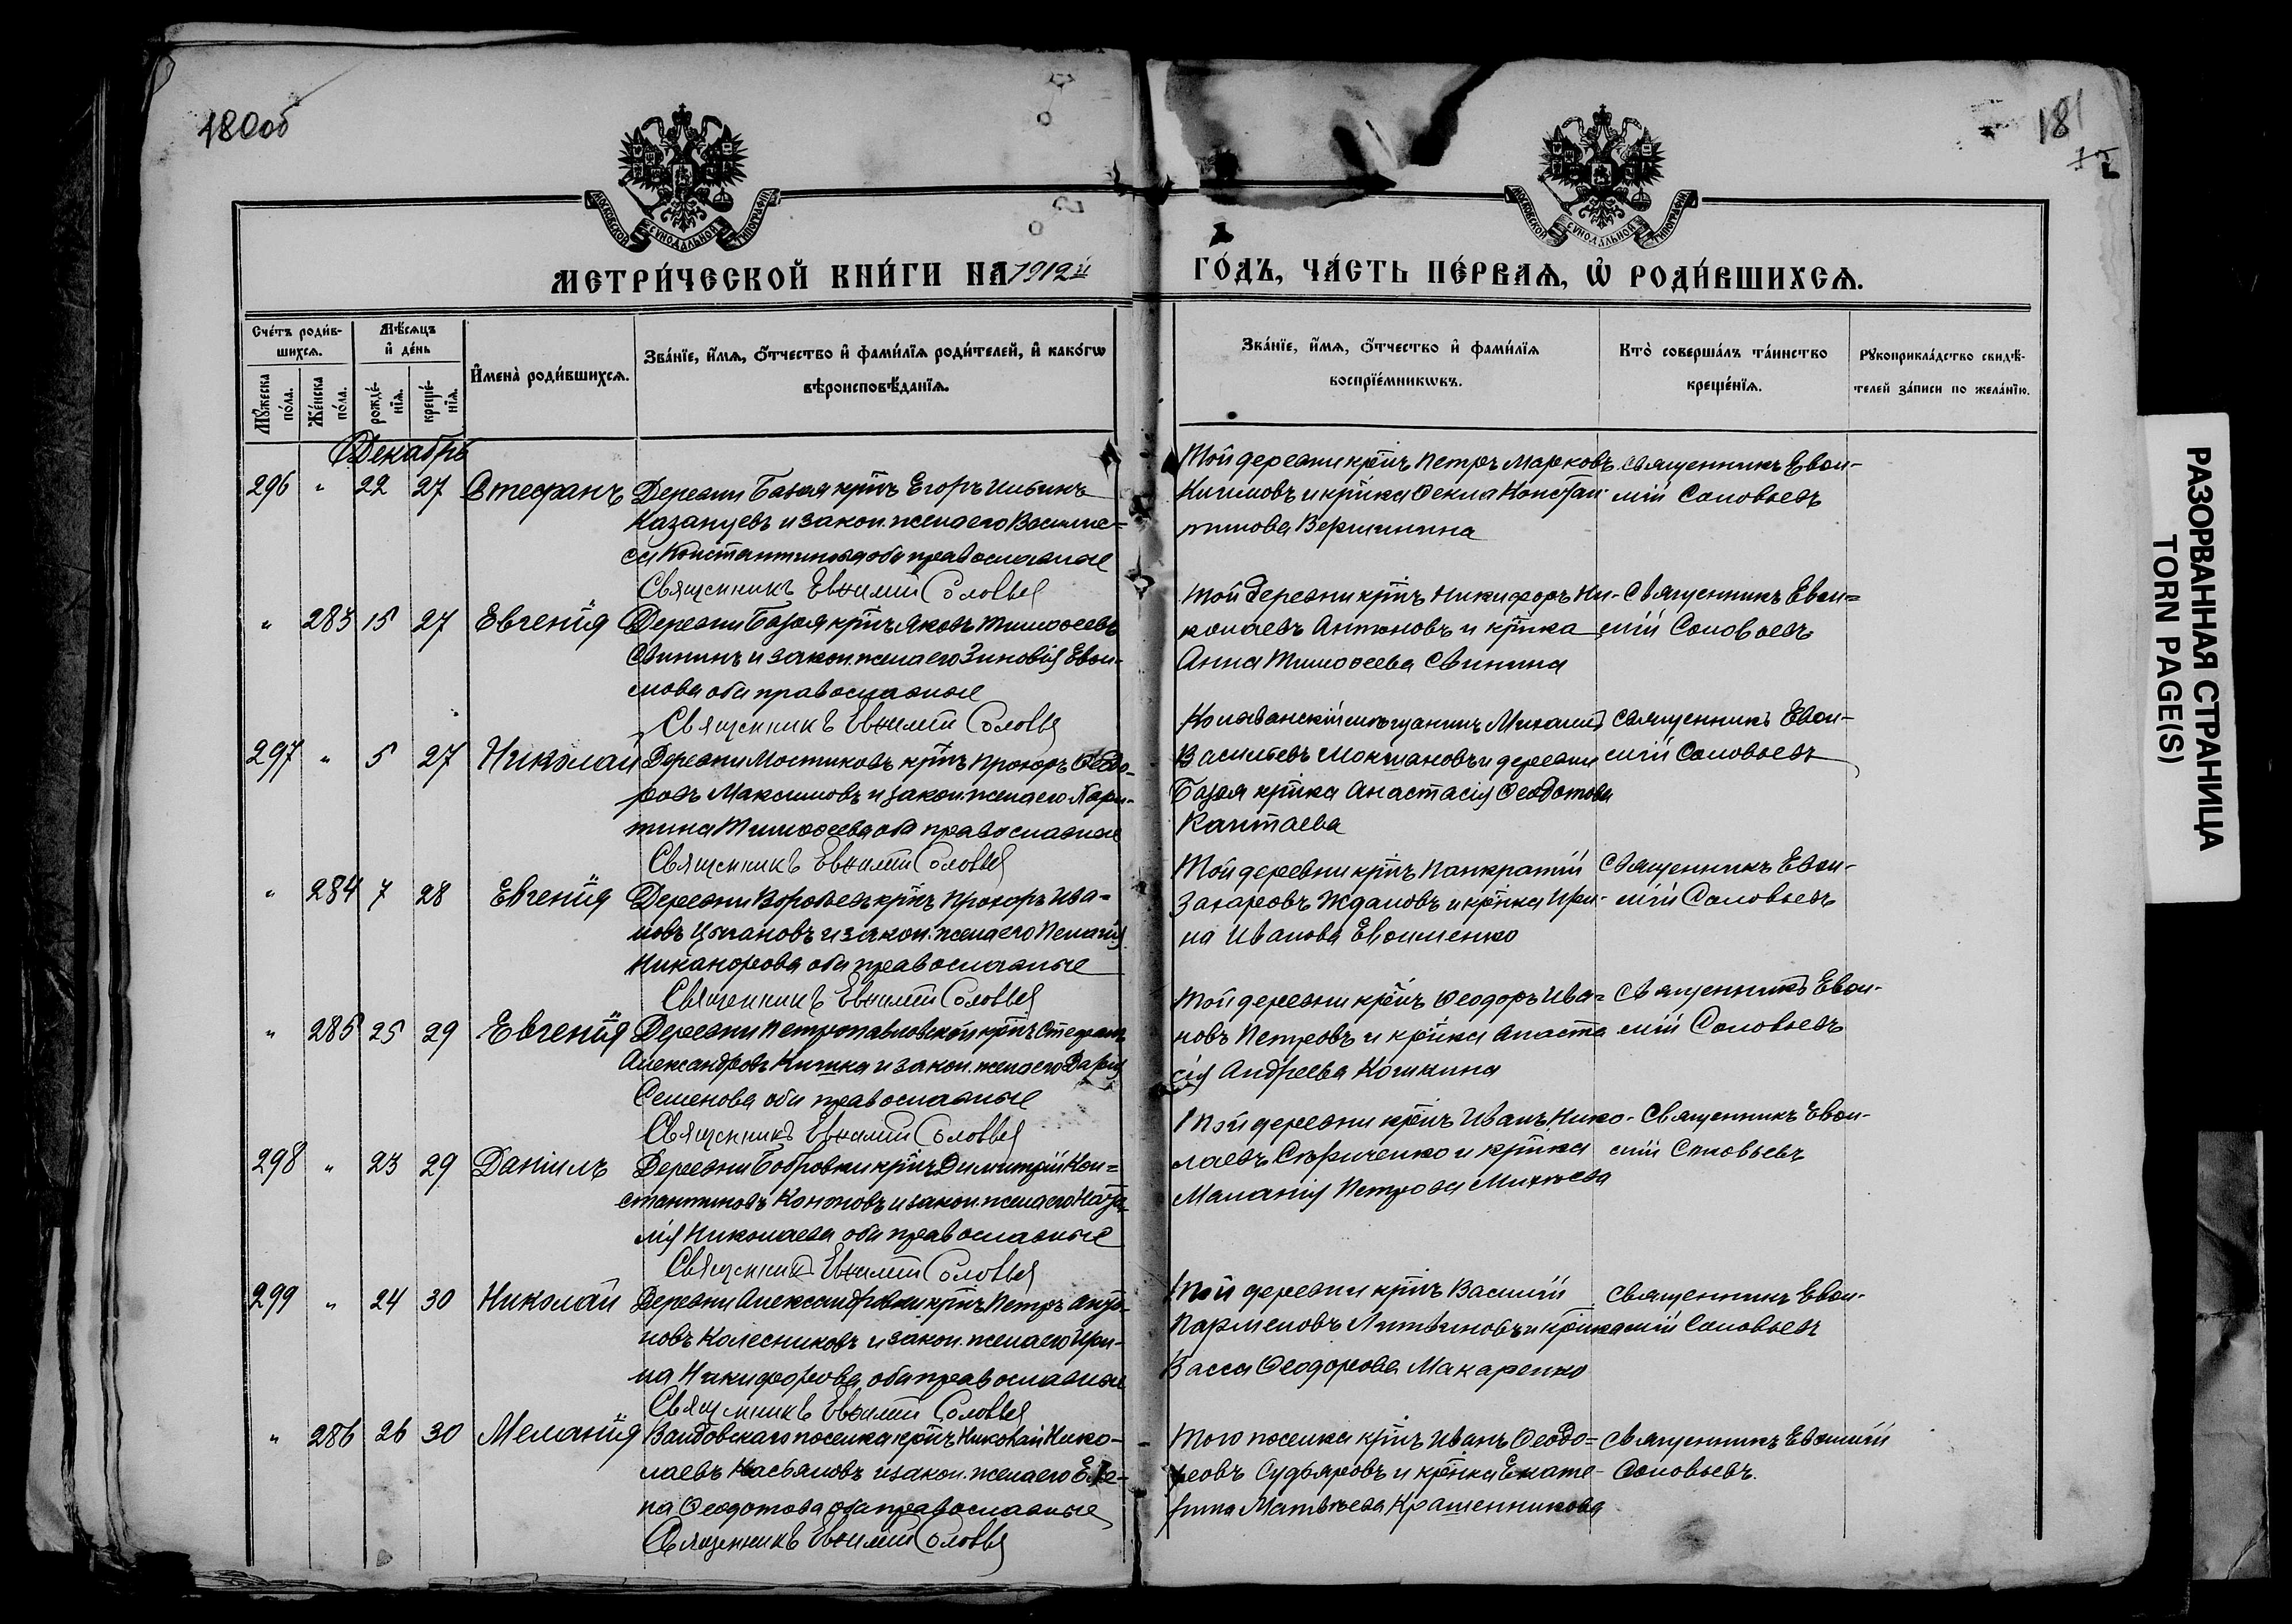 180об
181
МОСКОВСКОЙ СУНОДАЛЬНОЙ ТИПОГРАФІИ
МОСКОВСКОЙ СУНОДАЛЬНОЙ ТИПОГРАФІИ
МЕТРИ́ЧЕСКОЙ КНИ́ГИ НА 1912й
ГО́ДЪ, ЧА́СТЬ ПЕ́РВАѦ, Ѽ РОДИ́ВШИХСѦ.
Сче́тъ роди́в-
шихсѧ.
Мѣ́сѧцъ
и҆ де́нь
Мꙋ́жеска
по́ла.
Же́нска
по́ла.
рожде́-
нїѧ.
креще́-
нїѧ.
И҆мена̀ роди́вшихсѧ.
Зва́нїе, и҆́мѧ, ѻ҆́тчество и҆ фами́лїѧ роди́телей, и҆ како́гѡ
вѣроисповѣ́данїѧ.
Зва́нїе, и҆́мѧ, ѻ҆́тчество и҆ фами́лїѧ
воспрїе́мникѡвъ.
Кто̀ соверша́лъ та́инство
креще́нїѧ.
Рꙋкоприкла́дство свидѣ́-
телей за́писи по жела́нїю.
Декабрь
296 " 22 27 Стефанъ Деревни Базоя кр̃нъ Егоръ Ильинъ
Казанцевъ и закон. жена его Васили-
са Константинова оба православные
Священникъ Евѳимій Соловьев
Той деревни кр̃нъ Петръ Марковъ
Климовъ и кр̃нка Ѳекла Констан-
тинова Вершинина
Священникъ Евѳи-
мій Соловьевъ
" 283 15 27 Евгенія Деревни Базоя кр̃нъ Яковъ Тимоѳеевъ
Свининъ и закон. жена его Зиновія Евѳи-
мова оба православные
Священникъ Евѳимій Соловьев
Той деревни кр̃нъ Никифоръ Ни-
колаевъ Антоновъ и кр̃нка
Анна Тимоѳеева Свинина
Священникъ Евѳи=
мій Соловьевъ
297 " 5 27 Николай Деревни Мостиковъ кр̃нъ Прохоръ Ѳедо-
ровъ Максимовъ и закон. жена его Хари-
тина Тимоѳеева оба православные
Священникъ Евѳимій Соловьев
Колыванскій мѣщанинъ Михаилъ
Васильевъ Мокшановъ и деревни
Базоя кр̃нка Анастасія Ѳеодотова
Калтаева
Священникъ Евѳи-
мій Соловьевъ
" 284 7 28 Евгенія Деревни Воробьевъ кр̃нъ Прохоръ Ива=
новъ Цыгановъ и закон. жена его Пелагія
Никанорова оба православные
Священникъ Евѳимій Соловьев
Той деревни кр̃нъ Панкратій
Захаровъ Ждановъ и кр̃нка Ири-
на Иванова Евѳименко
Священникъ Евѳи-
мій Соловьевъ
" 285 25 29 Евгенія Деревни Петропавловской кр̃нъ Стефанъ
Александровъ Кишка и закон. жена его Дарія
Семенова оба православные
Священникъ Евѳимій Соловьев
Той деревни кр̃нъ Ѳеодоръ Ива=
новъ Петровъ и кр̃нка Анаста
сія Андреева Кошкина
Священникъ Евѳи-
мій Соловьевъ
298 " 23 29 Даніилъ Деревни Бобровки кр̃нъ Димитрій Кон=
стантиновъ Кононовъ и закон. жена его Ната-
лія Николаева оба православные
Священникъ Евѳимій Соловьев
Той деревни кр̃нъ Иванъ Нико-
лаевъ и кр̃нка
Маланія Петрова Михѣева
Священникъ Евѳи-
мій Соловьевъ
299 " 24 30 Николай Деревни Александровки кр̃нъ Петръ Анто-
новъ Колесниковъ и закон. жена его Ири-
на Никифорова оба православные
Священникъ Евѳимій Соловьев
Той деревни кр̃нъ Василій
Парменовъ Литвиновъ и кр̃нка
Васса Ѳеодорова Макаренко
Священникъ Евѳи-
мій Соловьевъ
" 286 26 30 Меланія поселка кр̃нъ Николай Нико-
лаевъ Касьяновъ и закон. жена его Еле-
на Ѳеодотова оба православные
Священникъ Евѳимій Соловьев
Того поселка кр̃нъ Иванъ Ѳеодо=
ровъ Судьяровъ и кр̃нка Екате-
рина Матвѣева Крашенникова
Священникъ Евѳимій
Соловьевъ.
РАЗОРВАННАЯ СТРАНИЦА
TORN PAGE(S)